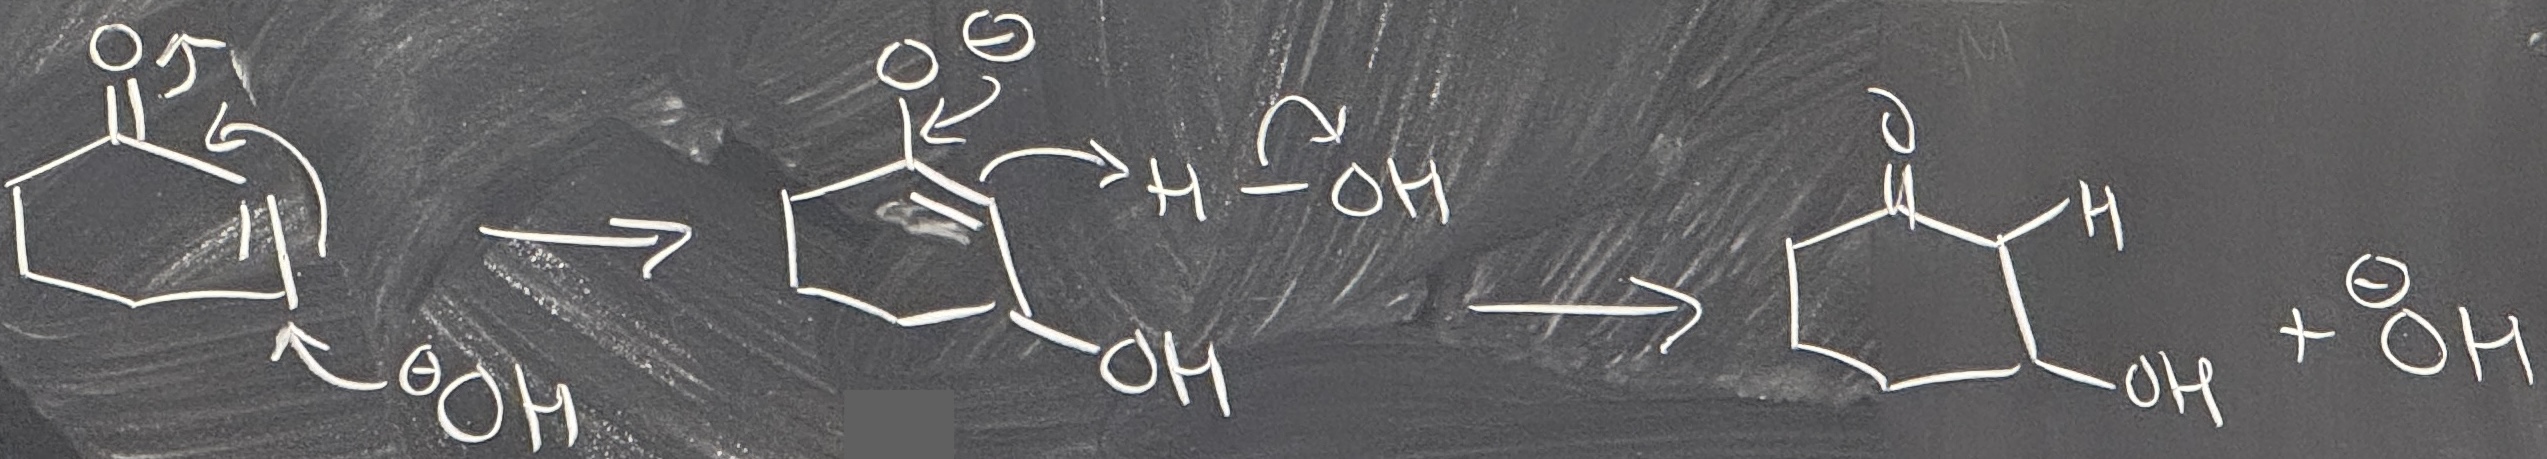 O
⊖OH
O⊖
H-OH
OH
O
H
OH
+ ⊖OH